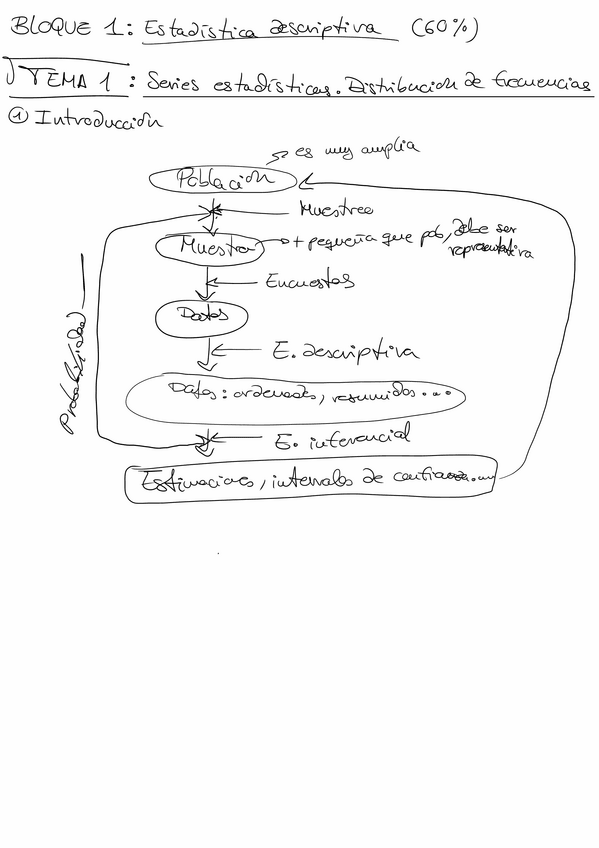 BLOQUE 1: Estadística descriptiva (60%)
TEMA 1: Series estadísticas. Distribución de frecuencias
① Introducción
es muy amplia
Población
Muestreo
Muestra
+ pequeña que pob, debe ser
representativa
Encuestas
Datos
E. descriptiva
Probabilidad
Datos: ordenados, resumidos...
E. inferencial
Estimaciones, intervalos de confianza...